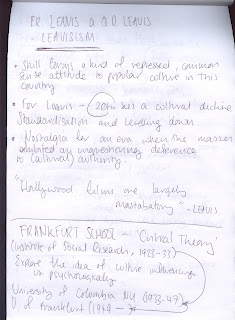 FR LEAVIS & Q D LEAVIS
LEAVISISM
• Still forms a kind of repressed, common
sense attitude to popular culture in this
country
• For Leavis - 20th C sees a cultural decline
Standardisation and levelling down
• Nostalgia for an era when the masses
exhibited an unquestioning deference
to (cultural) authority.
"Hollywood films are largely
masturbatory" - LEAVIS
FRANKFURT SCHOOL - 'Critical Theory'
(Institute of Social Research, 1923-33)
Explore the idea of culture influencing
us psychologically
University of Columbia NY (1933-49)
U of Frankfurt (1949 -